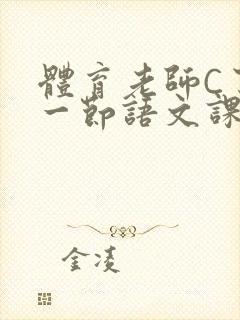 體育老師C
一節語文課
金凌